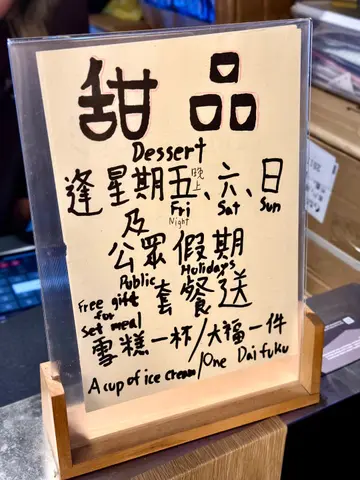 甜品
Dessert
逢星期五晚上、六、日
Fri Night Sat Sun
及
公眾假期
Public Holidays
套餐送
Free gift for set meal
雪糕一杯/大福一件
A cup of ice cream/One Daifuku